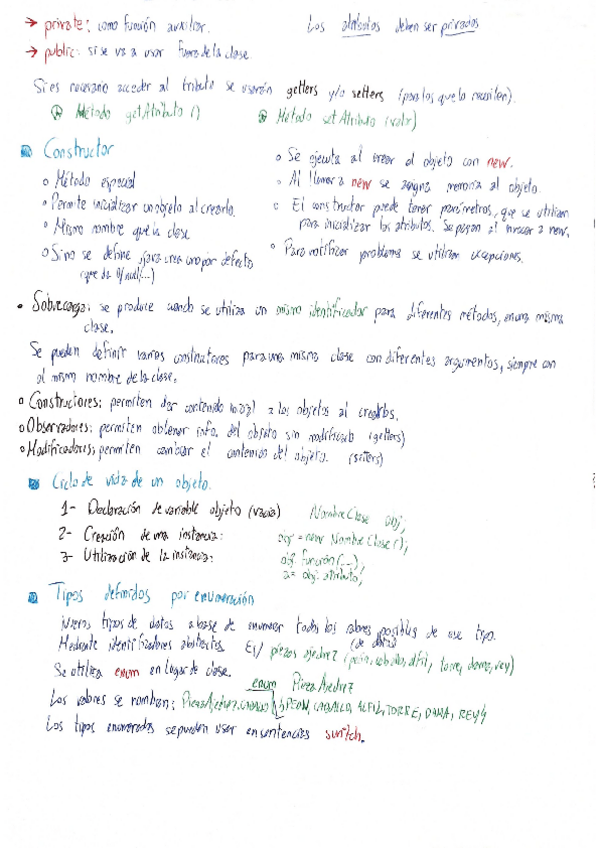 → private: como función auxiliar. Los atributos deben ser privados
→ public: si se va a usar fuera de la clase.
Si es necesario acceder al tributo se usarán getters y/o setters (para los que lo necesiten).
Método getAtributo () Método setAtributo (valor)
Constructor
o Método especial
o Permite inicializar un objeto al crearlo.
o Mismo nombre que la clase
o Si no se define, java crea uno por defecto
(que da 0/null/...)
o Se ejecuta al crear el objeto con new.
o Al llamar a new se asigna memoria al objeto.
o El constructor puede tener parámetros, que se utilizan
para inicializar los atributos. Se pasan al invocar a new.
o Para notificar problemas se utilizan excepciones.
• Sobrecarga: se produce cuando se utiliza un mismo identificador para diferentes métodos, en una misma
clase.
Se pueden definir varios constructores para una misma clase con diferentes argumentos, siempre con
el mismo nombre de la clase.
o Constructores: permiten dar contenido inicial a los objetos al crearlos.
o Observadores: permiten obtener info. del objeto sin modificarlo (getters)
o Modificadores: permiten cambiar el contenido del objeto. (setters)
Ciclo de vida de un objeto.
1- Declaración de variable objeto (vacía) NombreClase obj;
2- Creación de una instancia: obj = new NombreClase();
3- Utilización de la instancia: obj. función (...);
a = obj. atributo;
Tipos definidos por enumeración
Nuevos tipos de datos a base de enumerar todos los valores posibles de ese tipo.
Mediante identificadores abstractos Ej/ piezas ajedrez (peón, caballo, alfil, torre, dama, rey)
Se utiliza enum en lugar de clase.
enum PiezaAjedrez
Los valores se nombran: PiezaAjedrez.CABALLO {PEON, CABALLO, ALFIL, TORRE, DAMA, REY}
Los tipos enumerados se pueden usar en sentencias switch.